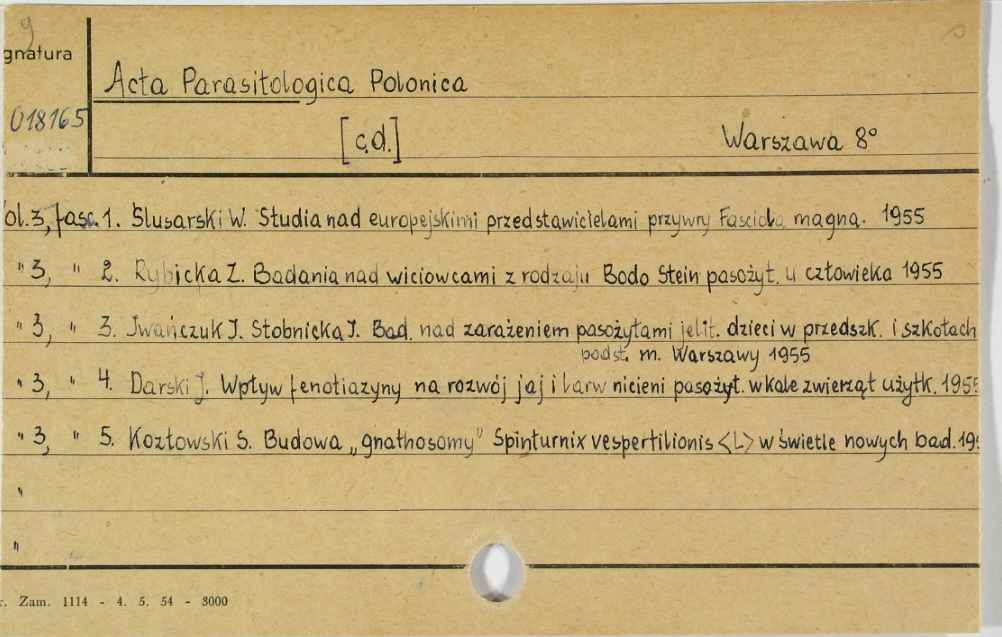 9
gnatura
Acta Parasitologica Polonica
018165
[c.d.] Warszawa 8°
ol. 3, fasc. 1. Ślusarski W. Studia nad europejskimi przedstawicielami przywry Fasciola magna. 1955
" 3, " 2. Rybicka Z. Badania nad wiciowcami z rodzaju Bodo Stein pasożyt. u człowieka 1955
" 3, " 3. Iwańczuk I. Stobnicka I. Bad. nad zarażeniem pasożytami jelit. dzieci w przedszk. i szkołach
podst. m. Warszawy 1955
" 3, " 4. Darski J. Wpływ fenotiazyny na rozwój jaj i larw nicieni pasożyt. w kale zwierząt użytk. 1955
" 3, " 5. Kozłowski S. Budowa „gnathosomy" Spinturnix vespertilionis <L> w świetle nowych bad. 195
"
"
r. Zam. 1114 - 4. 5. 54 - 3000